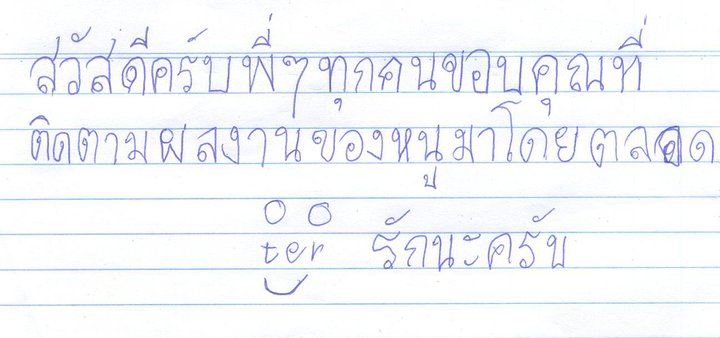 สวัสดีครับพี่ๆทุกคนขอบคุณที่
ติดตามผลงานของหนูมาโดยตลอด
ter รักนะครับ